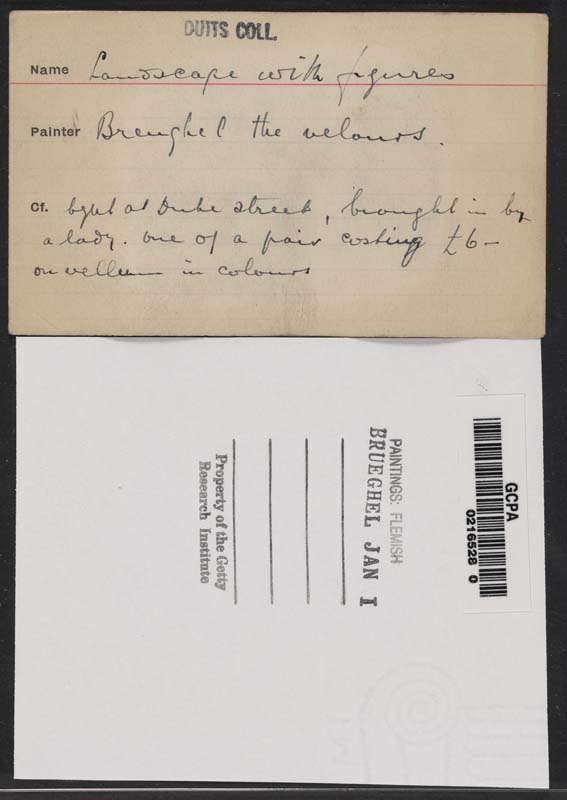 DUITS COLL.
Name Landscape with figures
Painter Breughel the velours.
Cf. bght at Duke street, brought in by
a lady. one of a pair costing £6-
on vellum in colours
GCPA
0216528 0
PAINTINGS: FLEMISH
BRUEGHEL JAN I
Property of the Getty
Research Institute